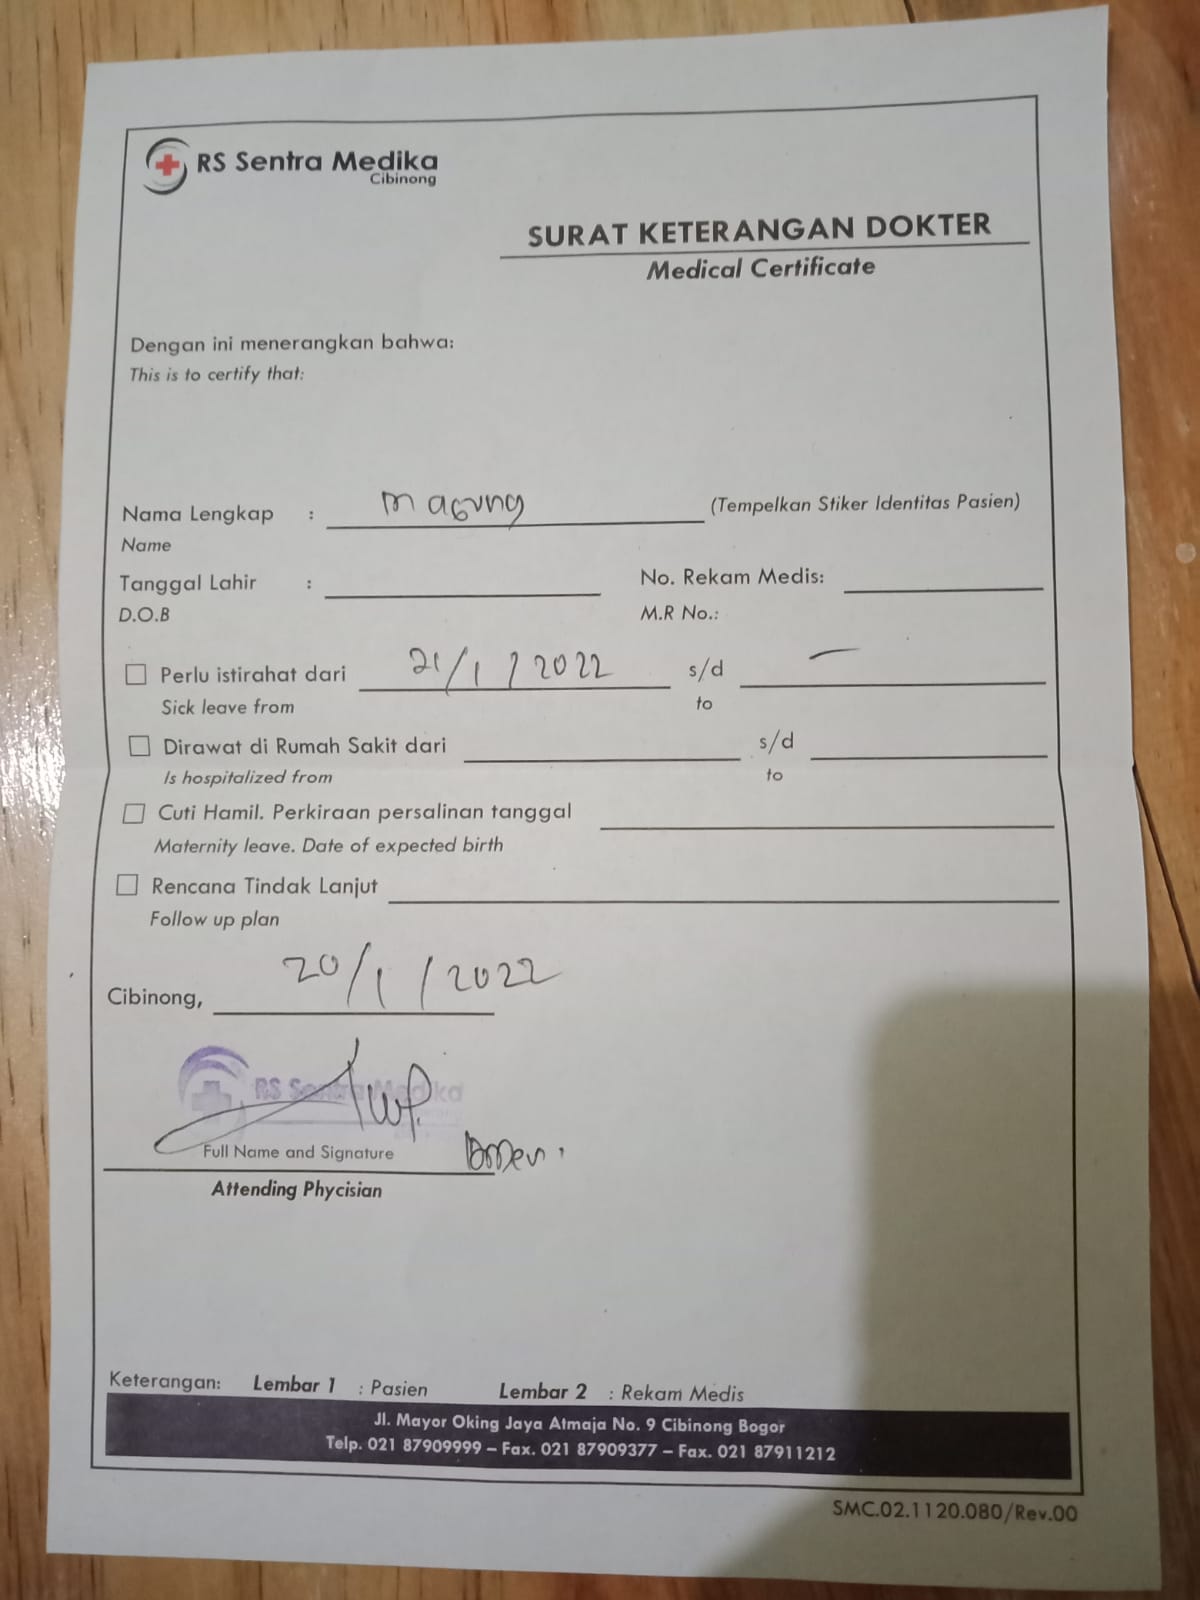 RS Sentra Medika
Cibinong
SURAT KETERANGAN DOKTER
Medical Certificate
Dengan ini menerangkan bahwa:
This is to certify that:
Nama Lengkap : m agung (Tempelkan Stiker Identitas Pasien)
Name
Tanggal Lahir : No. Rekam Medis:
D.O.B M.R No.:
Perlu istirahat dari 21/1/2022 s/d —
Sick leave from to
Dirawat di Rumah Sakit dari s/d
Is hospitalized from to
Cuti Hamil. Perkiraan persalinan tanggal
Maternity leave. Date of expected birth
Rencana Tindak Lanjut
Follow up plan
Cibinong, 20/1/2022
RS Sentra Medika
Full Name and Signature
Attending Phycisian
Keterangan: Lembar 1 : Pasien Lembar 2 : Rekam Medis
Jl. Mayor Oking Jaya Atmaja No. 9 Cibinong Bogor
Telp. 021 87909999 – Fax. 021 87909377 – Fax. 021 87911212
SMC.02.1120.080/Rev.00